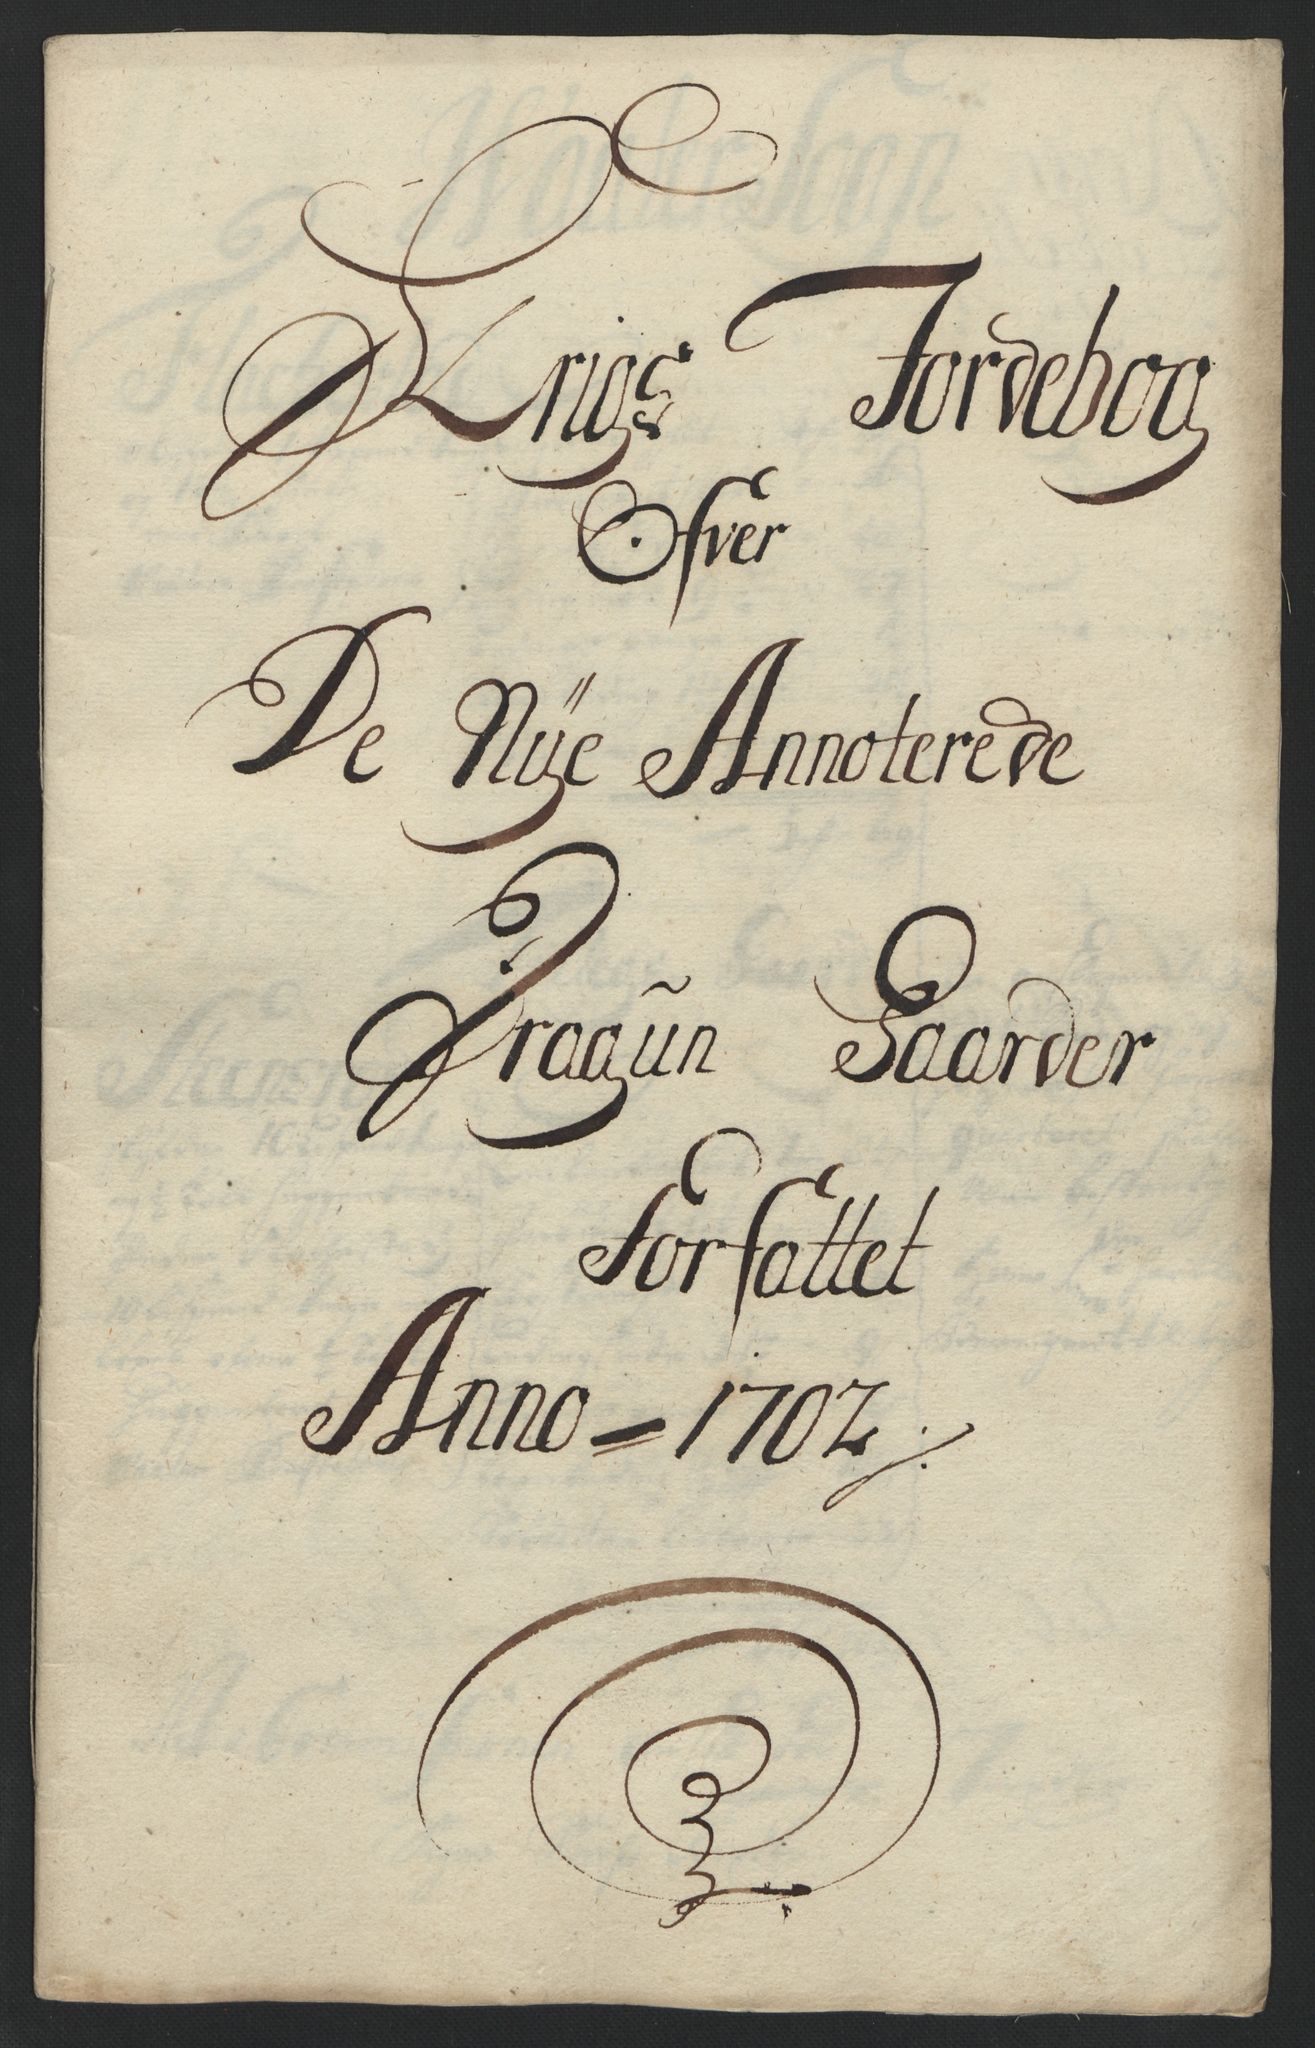 Krigs Jordebog
Ofver
De Nÿe Annoterede
Dragŭn Gaarder
Forfattet
Anno = 1702 ./.